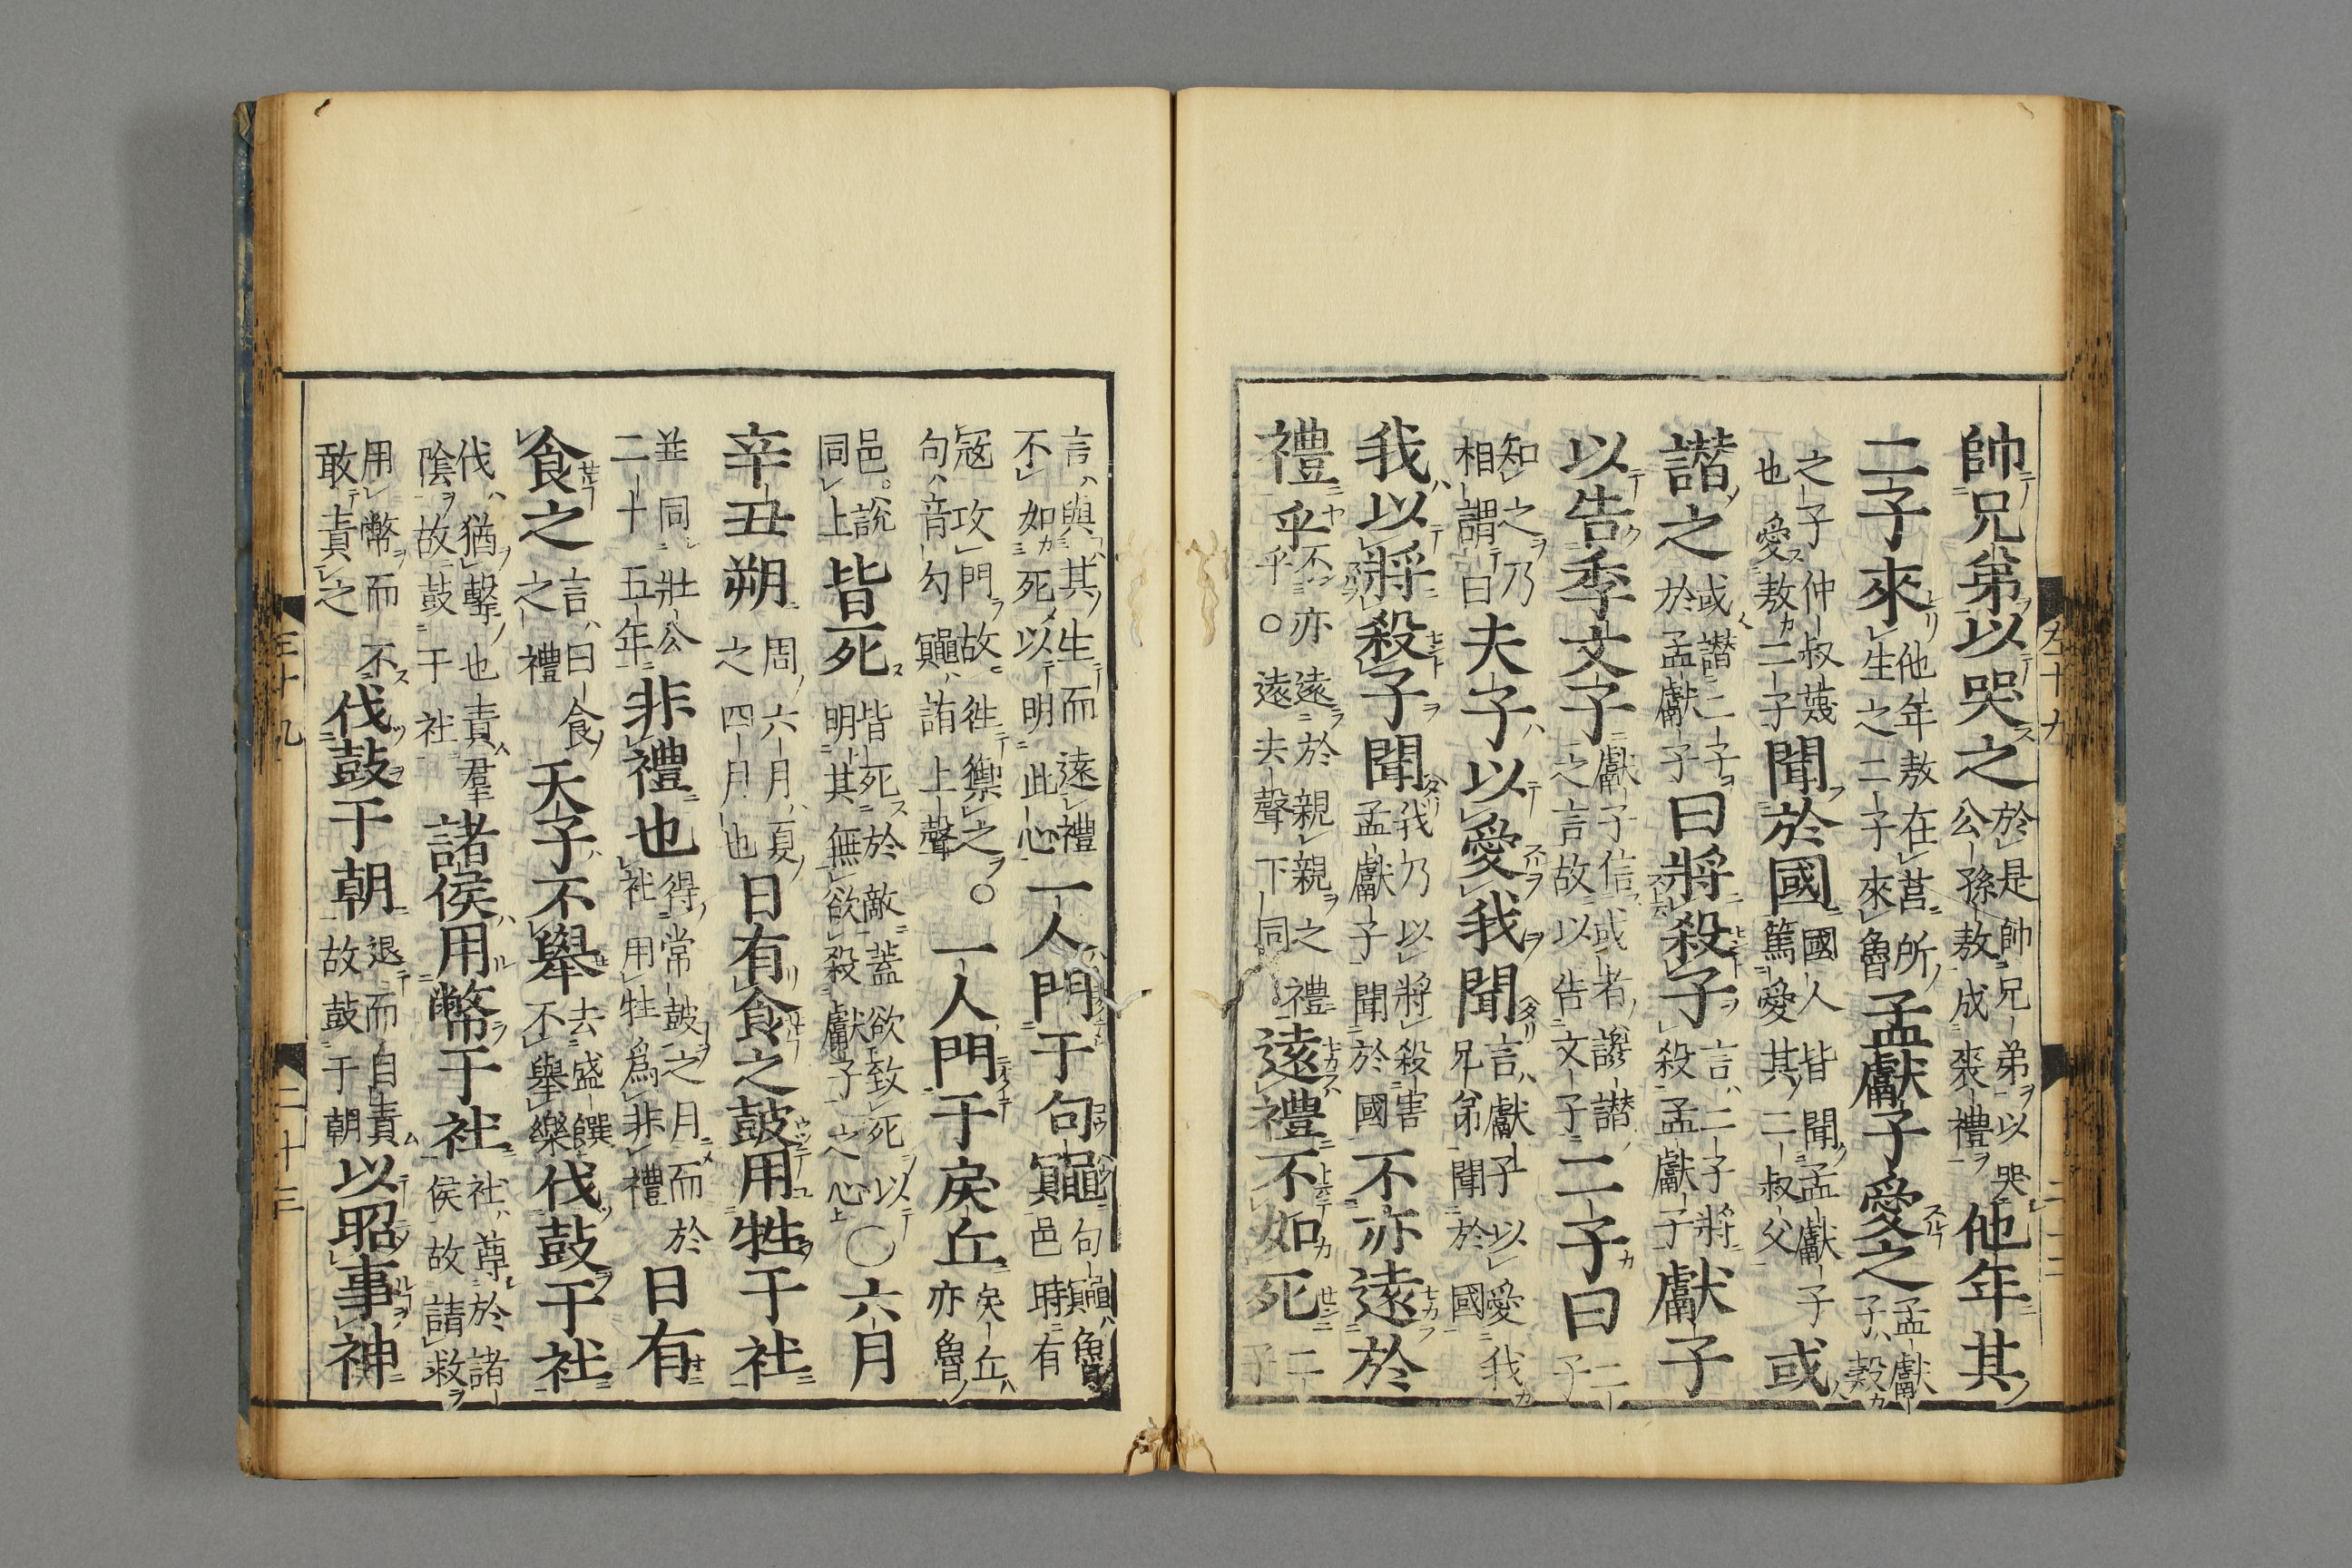 帥兄弟以哭之於是帥兄弟以哭公孫敖成喪禮他年其
二子來他年敖在莒所生之二子來魯孟獻子愛之孟獻子穀
之子仲叔蔑也愛敖二子聞於國國人皆聞孟獻子篤愛其二叔父或
譖之或譖二子於孟獻子曰將殺子言二子將殺孟獻子獻子
以告季文子獻子信或者讒譖之言故以告文子二子曰二子
知之乃相謂曰夫子以愛我聞言獻子以愛我兄弟聞於國
我以將殺子聞我乃以將殺害孟獻子聞於國不亦遠於
禮乎不亦遠於親親之禮乎○遠遠去聲下同遠禮不如死二子
言與其生而遠禮不如死以明此心一人門于句鼆句鼆魯邑時有
寇攻門故徃禦之○句音勾鼆誵上聲一人門于戾丘戾丘亦魯
邑說同上皆死皆死於敵蓋欲致死以明其無欲殺獻子之心○六月
辛丑朔周六月夏之四月也日有食之鼓用牲于社
並同壯公二十五年非禮也得常鼓之月而於社用牲爲非禮日有
食之言曰食之禮天子不舉去盛饌不舉樂伐鼓于社
伐猶擊也責羣陰故鼓于社諸侯用幣于社社尊於諸侯故請救
用幣而不敢責之伐鼓于朝退而自責故鼓于朝以昭事神
左十九
二十二
左十九
二十三